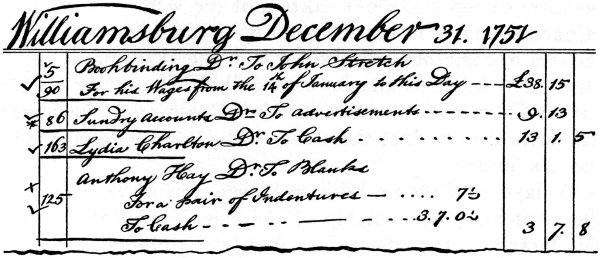 Williamsburg December 31. 1751
5 Bookbinding Dr. To John Stretch
90 For his Wages from the 14th of January to this Day ---- £38. 15
86 Sundry Accounts Drs To advertisements -------- 9. 13
163 Lydia Charlton Dr. To Cash ---- 13 1. 5
Anthony Hay Dr. To Blanks
125 For a pair of Indentures — .... 7½
To Cash ---------- 3. 7. 0½ 3 7. 8